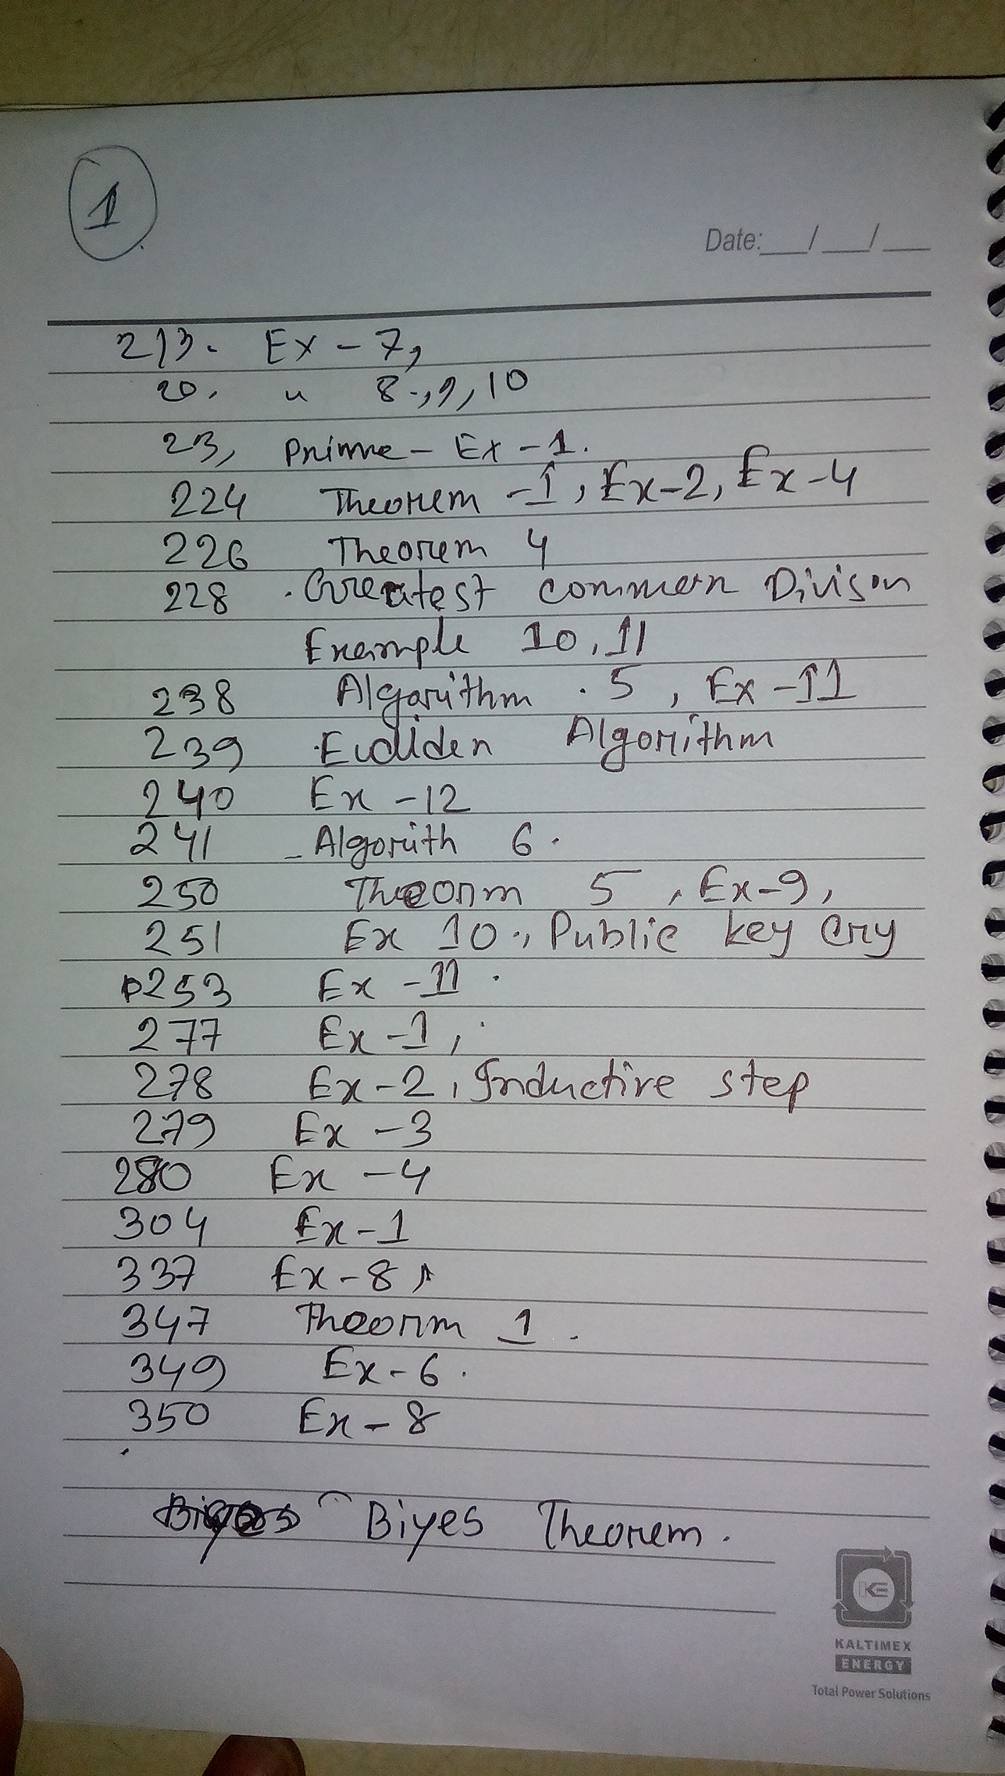 1
Date:__/__/__
213. Ex-7,
20. " 8.,9,10
23, Prime - Ex-1.
224 Theorem -1, Ex-2, Ex-4
226 Theorem 4
228 . Greatest common Divison
Example 10,11
238 Algorithm . 5, Ex-11
239 .Eucliden Algorithm
240 Ex-12
241 - Algorith 6.
250 Theorm 5, Ex-9,
251 Ex 10., Public key Cry
P253 Ex-11.
277 Ex-1,
278 Ex-2, Inductive step
279 Ex-3
280 Ex-4
304 Ex-1
337 Ex-8,
347 Theorm 1.
349 Ex-6.
350 Ex-8
Biyes Theorem.
KE
KALTIMEX
ENERGY
Total Power Solutions